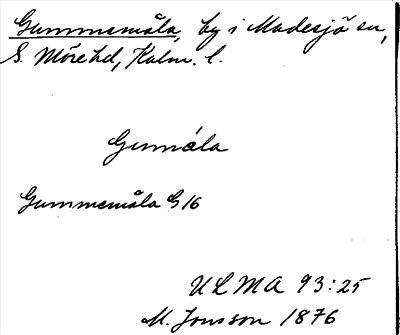 Gummemåla, by i Madesjö sn,
S. Möre hd, Kalm. l.
Gumåla
Gummemåla G 16
ULMA 93:25
M. Jonsson 1876